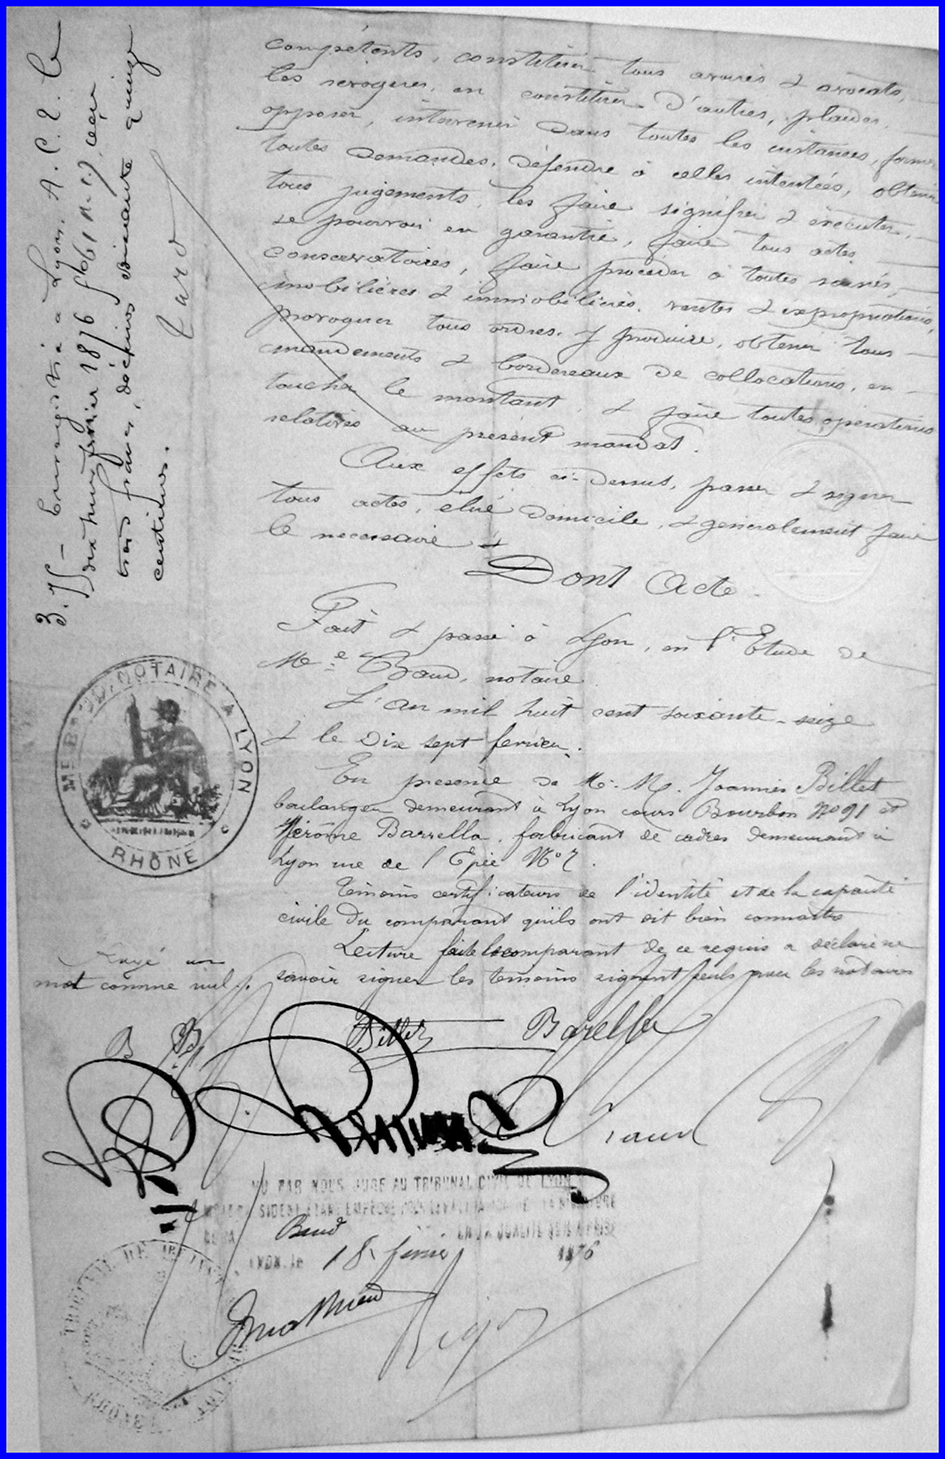 compétents, constituer tous avoués & avocats,
les révoquer, en constituer d'autres, plaider,
opposer, intervenir dans toutes les instances, former
toutes demandes, défendre à celles intentées, obtenir
tous jugements, les faire signifier & exécuter,
se pourvoir en garantie, faire tous actes
conservatoires, faire procéder à toutes saisies,
mobilières & immobilières, ventes & expropriations,
provoquer tous ordres, y produire, obtenir tous
mandements & bordereaux de collocations, en
toucher le montant, & faire toutes opérations
relatives au présent mandat.
Aux effets ci-dessus, passer & signer
tous actes, élire domicile, & généralement faire
le nécessaire &
Dont Acte.
Fait & passé à Lyon, en l'Etude de
Me Braud, notaire
L'an mil huit cent soixante-seize
& le dix sept fevrier.
En présence de M. M. Joannès Billet
boulanger demeurant à Lyon cours Bourbon No 91 et
Jérôme Barrella, fabricant de cadres demeurant à
Lyon rue de l'Epée No 7.
témoins certificateurs de l'identité et de la capacité
civile du comparant qu'ils ont dit bien connaitre
Lecture faite le comparant de ce requis a déclaré ne
savoir signer les témoins signent seuls avec les notaires
Rayé un
mot comme nul.
B B
Billet Barella
VU PAR NOUS JUGE AU TRIBUNAL CIVIL DE LYON
LYON, le 18 fevrier 1876
3.75 - Enregistré à Lyon. A. C. 2. le
dix huit fevrier 1876 reçu
trois francs, décimes soixante quinze
centimes.
NOTAIRE A LYON
RHÔNE